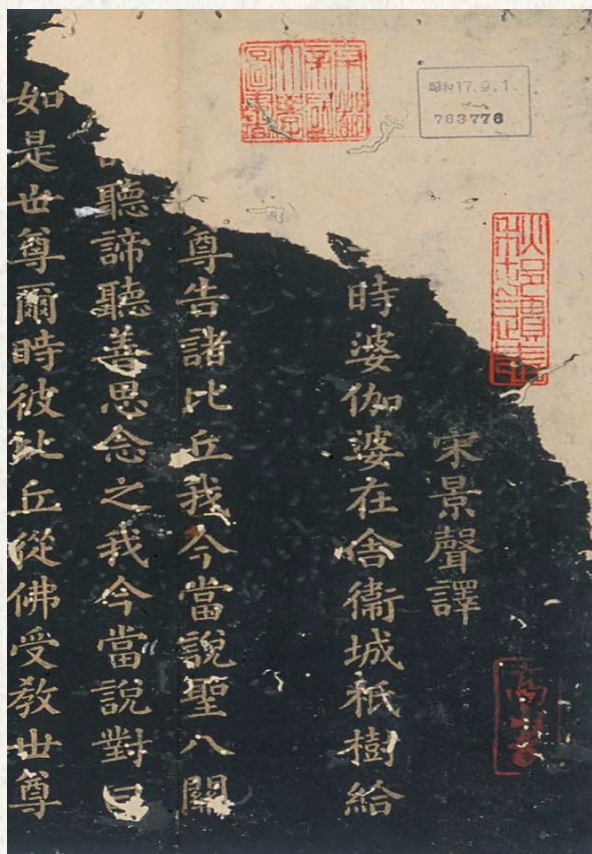 昭和17.9.1.
763776
宋景聲譯
時婆伽婆在舍衞城祇樹給
尊告諸比丘我今當說聖八關
聽諦聽善思念之我今當說對曰
如是世尊爾時彼比丘從佛受教世尊
高山寺